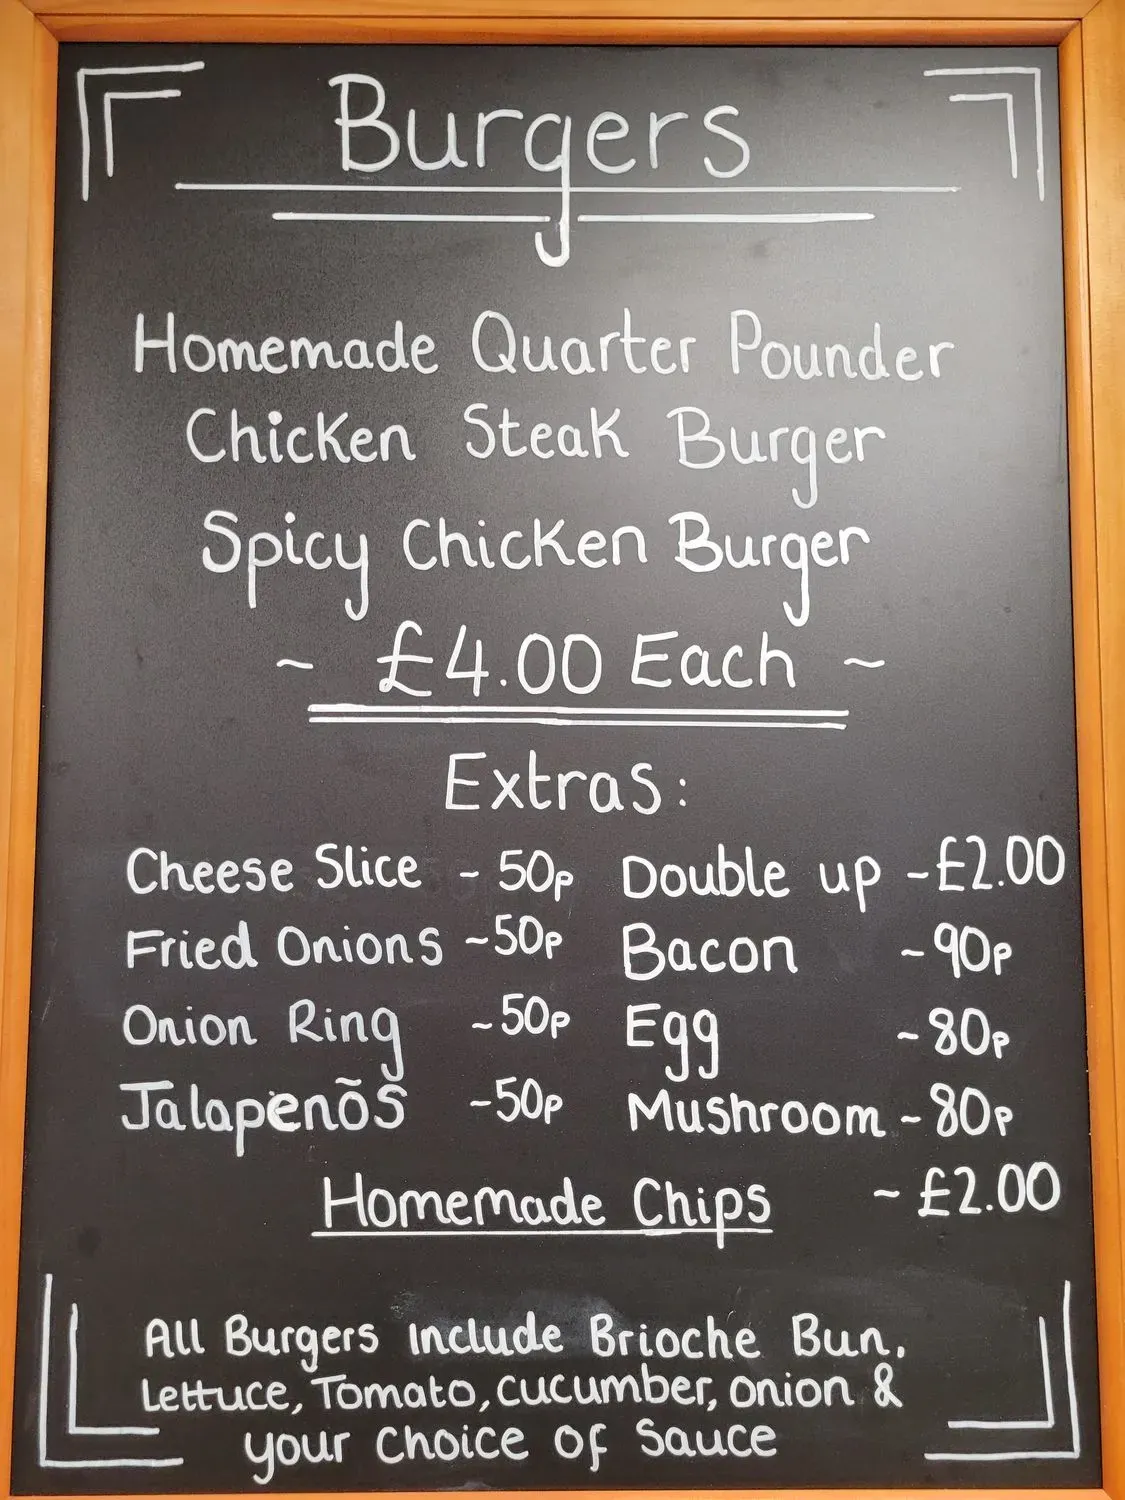 Burgers
Homemade Quarter Pounder
Chicken Steak Burger
Spicy Chicken Burger
~ £4.00 Each ~
Extras:
Cheese Slice - 50p Double up - £2.00
Fried Onions ~ 50p Bacon ~ 90p
Onion Ring ~ 50p Egg ~ 80p
Jalapenõs - 50p Mushroom - 80p
Homemade Chips ~ £2.00
All Burgers include Brioche Bun,
Lettuce, Tomato, cucumber, onion &
your choice of sauce